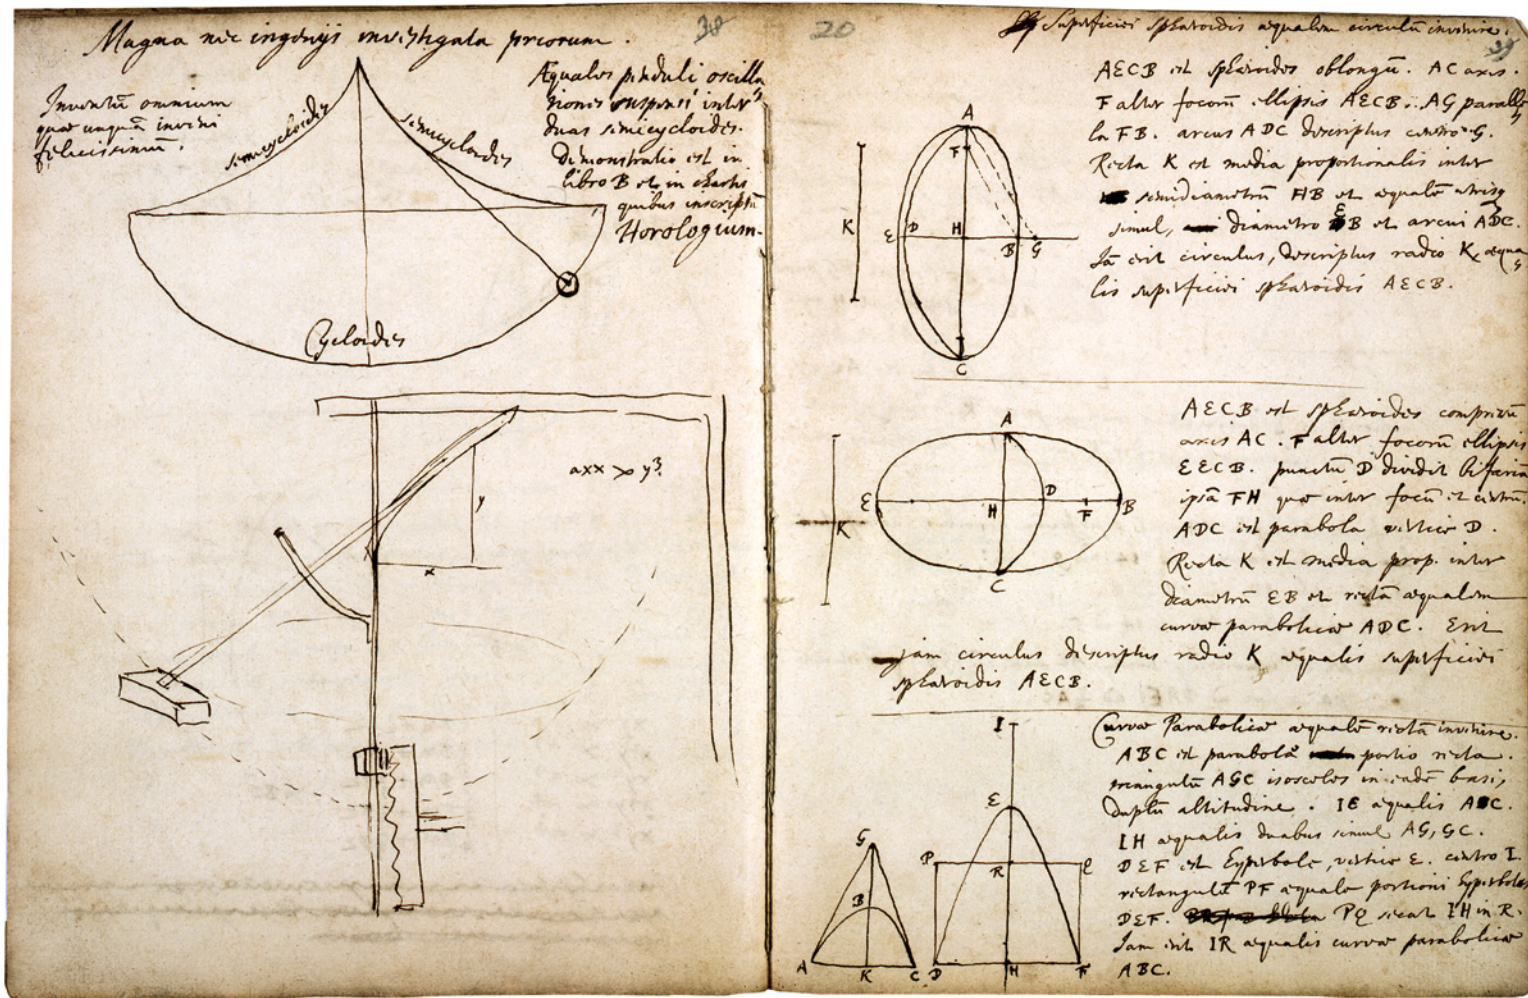 Magna nec ingenijs investigata priorum.
38
Inventū omnium
quae unquā inveni
felicissimū.
semicycloides
semicycloides
Æquales penduli oscilla
tiones suspensi inter
duas semicycloides.
Demonstratio est in
libro B et in chartis
quibus inscriptū
Horologium.
Cycloides
axx ∝ y³
y
x
20
Superficiei sphæroidis æqualem circulū invenire.
39
AECB est sphæroides oblongū. AC axis.
F alter focorū ellipsis AECB. AG paralle
la FB. arcus ADC descriptus centro G.
Recta K est media proportionalis inter
semidiametrū HB et æqualē utrisq
simul, diametro EB et arcui ADC.
Iā erit circulus, descriptus radio K, æqua
lis superficiei sphæroidis AECB.
A
F
K
E D H B G
C
AECB est sphæroides compressū
axis AC. F alter focorū ellipsis
EECB. punctū D dividit bifariā
ipsā FH quæ inter focū et centrū.
ADC est parabola vertice D.
Recta K est media prop. inter
diametrū EB et rectā æqualem
curvæ parabolicæ ADC. Erit
jam circulus descriptus radio K æqualis superficiei
sphæroidis AECB.
A
E H D F B
K
C
Curvæ Parabolicæ æqualē rectā invenire.
ABC est parabolæ portio recta.
triangulū AGC isosceles in eadē basi,
duplū altitudine. IE æqualis ABC.
IH æqualis duabus simul AG, GC.
DEF est hyperbole, vertice E. centro I.
rectangulū PF æquale portioni hyperbolæ
DEF. PQ secat IH in R.
Iam erit IR æqualis curvæ parabolicæ
ABC.
I
E
G
P R Q
B
A K C D H F